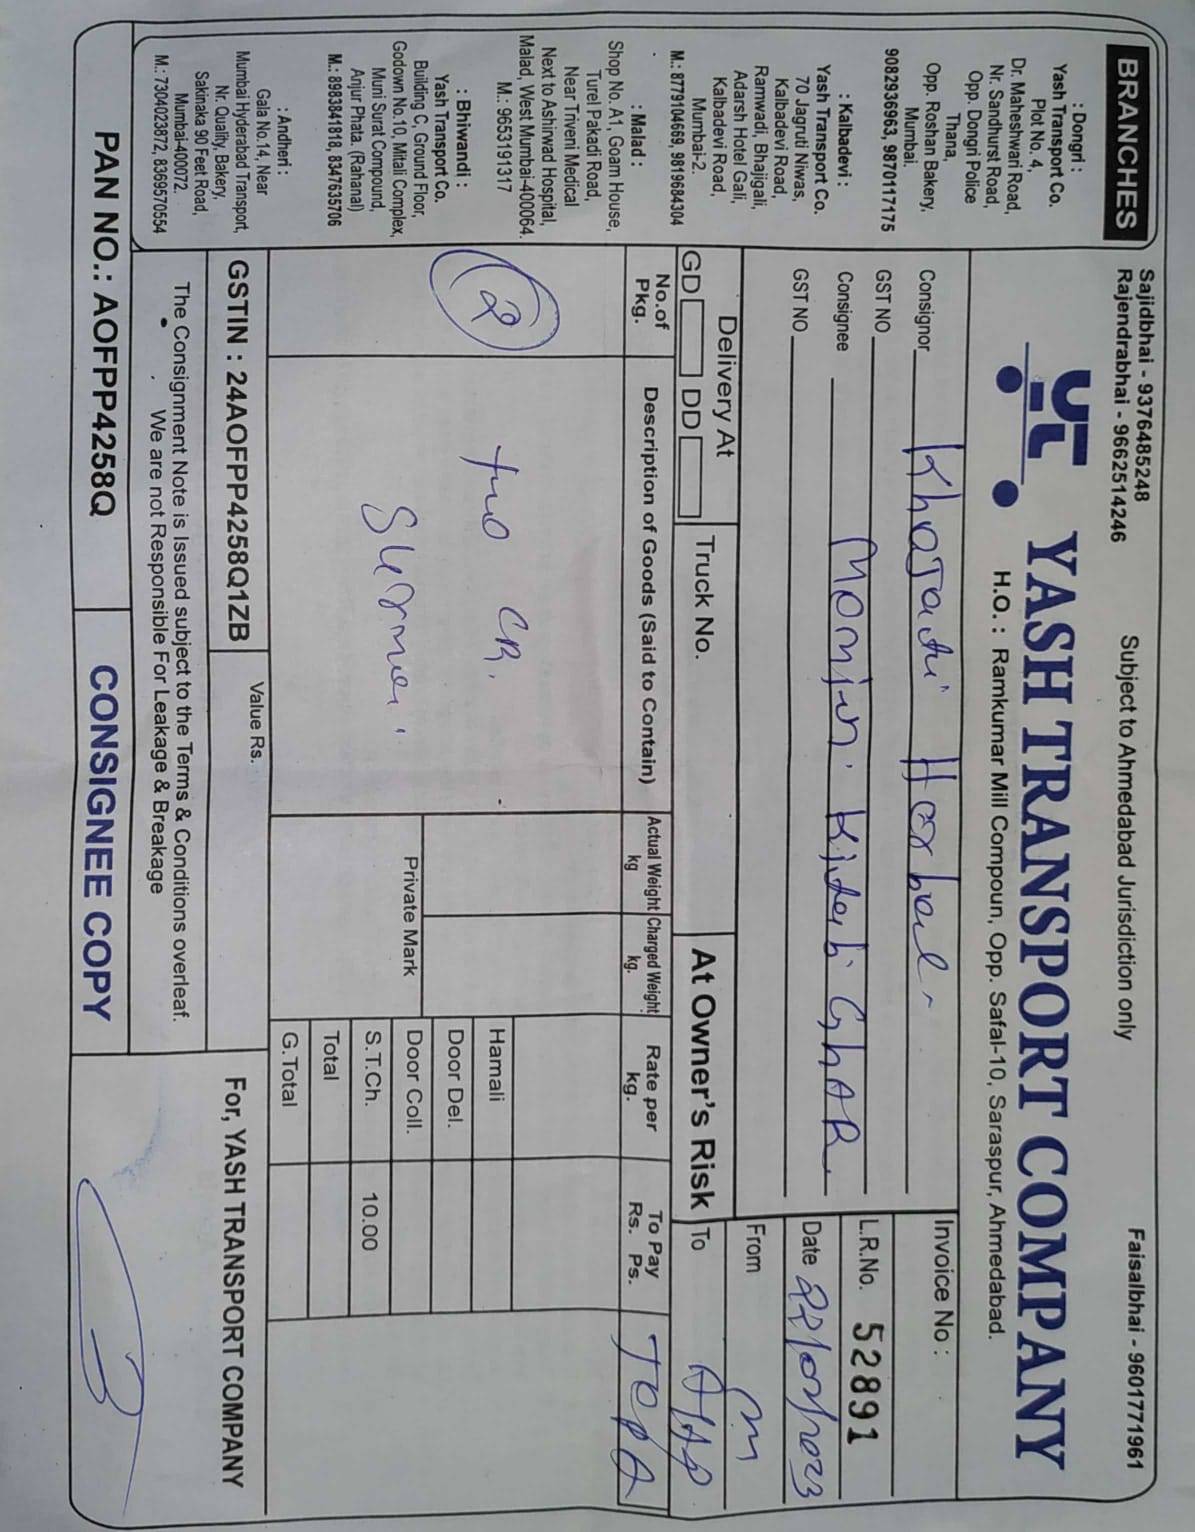 BRANCHES
: Dongri :
Yash Transport Co.
Plot No. 4,
Dr. Maheshwari Road,
Nr. Sandhurst Road,
Opp. Dongri Police
Thana,
Opp. Roshan Bakery,
Mumbai.
9082936963, 9870117175
: Kalbadevi :
Yash Transport Co.
70 Jagruti Niwas,
Kalbadevi Road,
Ramwadi, Bhajigali,
Adarsh Hotel Gali,
Kalbadevi Road,
Mumbai-2.
M.: 8779104669, 9819684304
: Malad :
Shop No. A1, Goam House,
Turel Pakadi Road,
Near Triveni Medical
Next to Ashirwad Hospital,
Malad, West Mumbai-400064.
M.: 9653191317
: Bhiwandi :
Yash Transport Co.
Building C, Ground Floor,
Godown No.10, Mitali Complex,
Muni Surat Compound,
Anjur Phata. (Rahanal)
M.: 8983841818, 8347635706
: Andheri :
Gala No.14, Near
Mumbai Hyderabad Transport,
Nr. Quality, Bakery,
Sakinaka 90 Feet Road,
Mumbai-400072.
M.: 7304023872, 8369570554
Sajidbhai - 9376485248
Rajendrabhai - 9662514246
Subject to Ahmedabad Jurisdiction only
Faisalbhai - 9601771961
YASH TRANSPORT COMPANY
H.O. : Ramkumar Mill Compoun, Opp. Safal-10, Saraspur, Ahmedabad.
Consignor Herbal
GST NO
Consignee GhAR
GST NO
Invoice No :
L.R.No. 52891
Date
From m
To
Delivery At
GD DD
Truck No.
At Owner's Risk
No.of Pkg.
Description of Goods (Said to Contain)
Actual Weight kg
Charged Weight kg.
Rate per kg.
To Pay Rs. Ps.
2
Hamali
Door Del.
Door Coll.
S.T.Ch. 10.00
Total
G.Total
Private Mark
GSTIN : 24AOFPP4258Q1ZB
Value Rs.
The Consignment Note is Issued subject to the Terms & Conditions overleaf.
We are not Responsible For Leakage & Breakage
For, YASH TRANSPORT COMPANY
PAN NO.: AOFPP4258Q
CONSIGNEE COPY